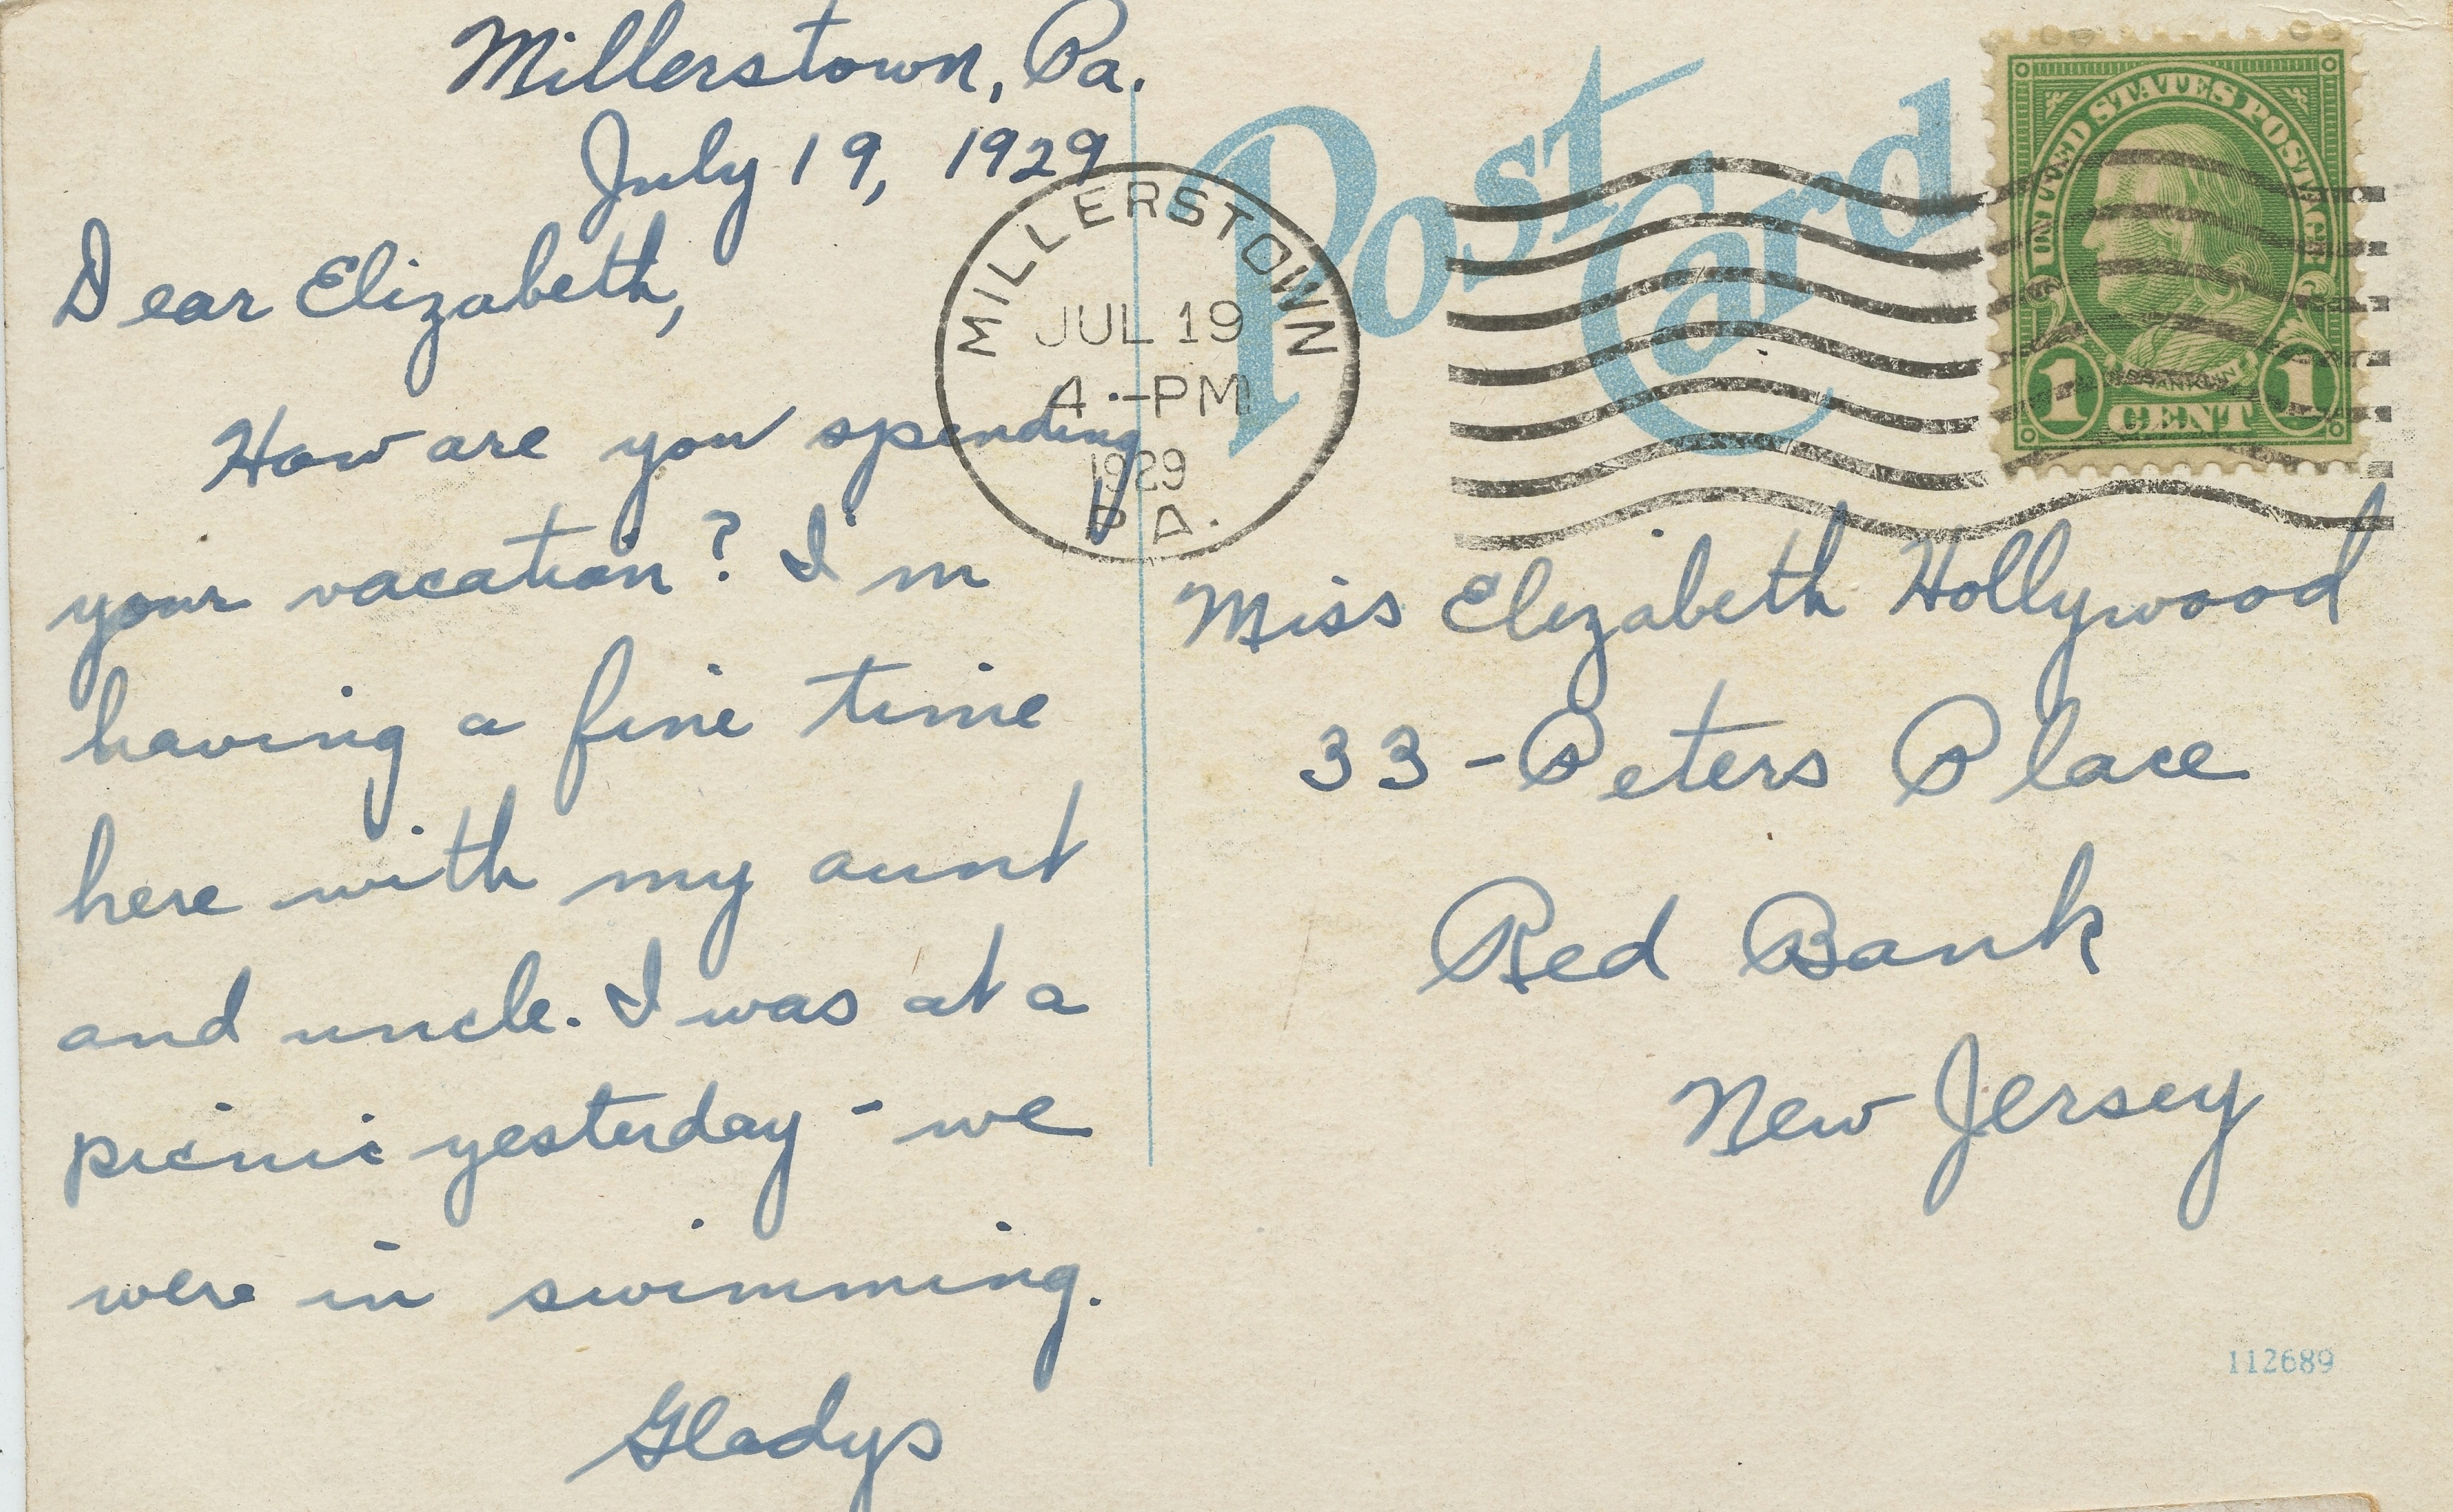 Millerstown, Pa.
July 19, 1929
Dear Elizabeth,
How are you spending
your vacation? I'm
having a fine time
here with my aunt
and uncle. I was at a
picnic yesterday - we
were in swimming.
Gladys
Post Card
MILLERSTOWN
JUL 19
4 - PM
1929
PA.
UNITED STATES POSTAGE
FRANKLIN
1 CENT 1
Miss Elizabeth Hollywood
33 - Peters Place
Red Bank
New Jersey
112689